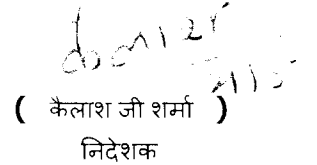 ( कैलाश जी शर्मा )
निदेशक